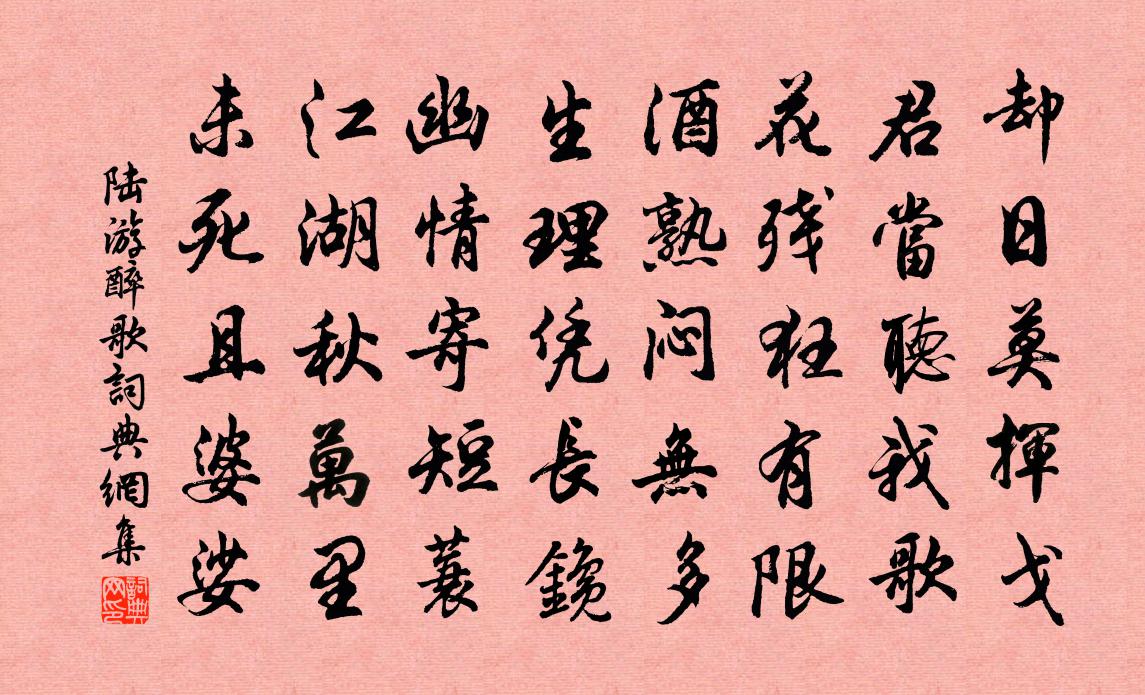 却日莫揮戈
君當聽我歌
花残狂有限
酒熟闷無多
生理凭長鑱
幽情寄短蓑
江湖秋萬里
未死且婆娑
陆游醉歌詞典網集
詞典网印